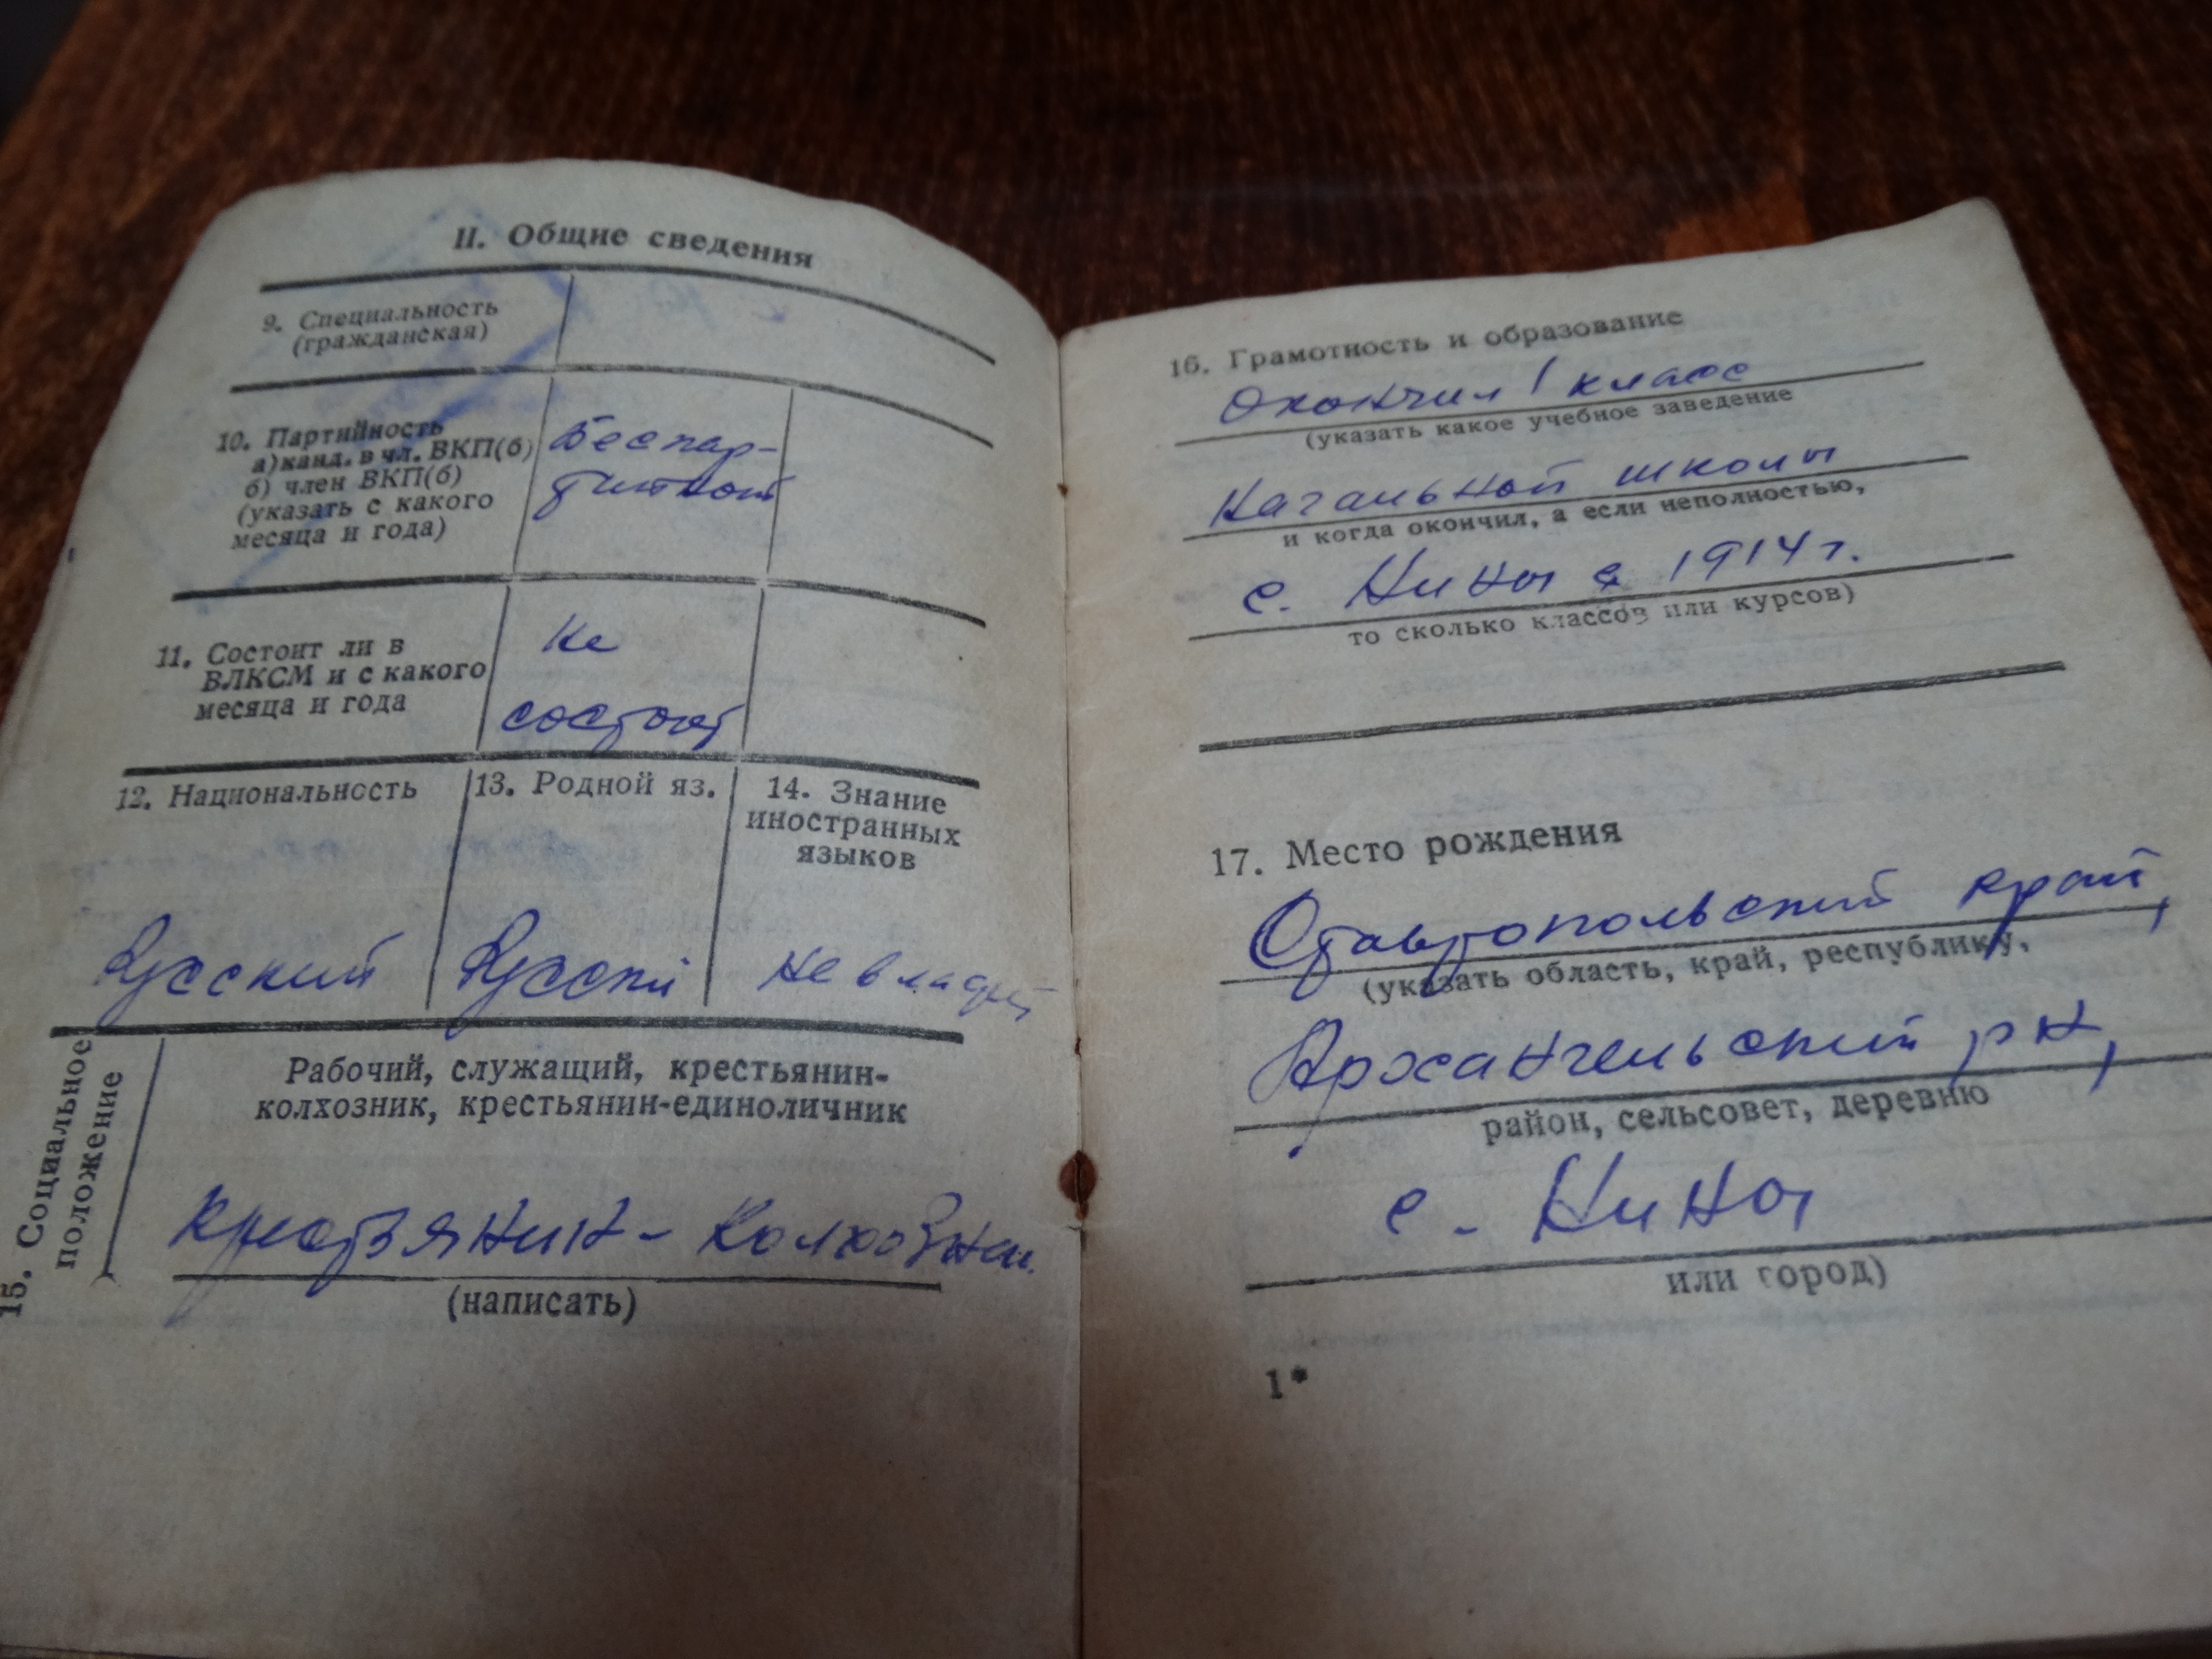 II. Общие сведения
9. Специальность
(гражданская)
10. Партийность
а) канд. в чл. ВКП(б)
б) член ВКП(б)
(указать с какого
месяца и года)
Беспар-
тийный
11. Состоит ли в
ВЛКСМ и с какого
месяца и года
Не
состоит
12. Национальность
Русский
13. Родной яз.
Русский
14. Знание
иностранных
языков
не владеет
15. Социальное
положение
Рабочий, служащий, крестьянин-
колхозник, крестьянин-единоличник
Крестьянин - Колхозник
(написать)
16. Грамотность и образование
Окончил 1 класс
(указать какое учебное заведение
Начальной школы
и когда окончил, а если неполностью,
с. Нины в 1914 г.
то сколько классов или курсов)
17. Место рождения
Ставропольский край,
(указать область, край, республику,
Архангельский р н,
район, сельсовет, деревню
с. Нины
или город)
1*